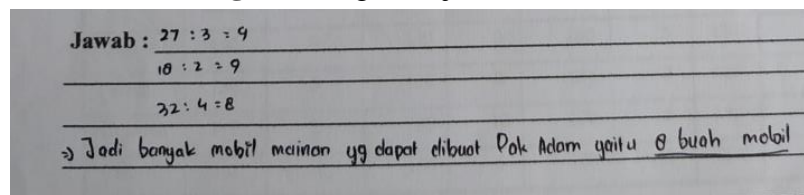 Jawab : 27 : 3 = 9
18 : 2 = 9
32 : 4 = 8
=> Jadi banyak mobil mainan yg dapat dibuat Pak Adam yaitu 8 buah mobil